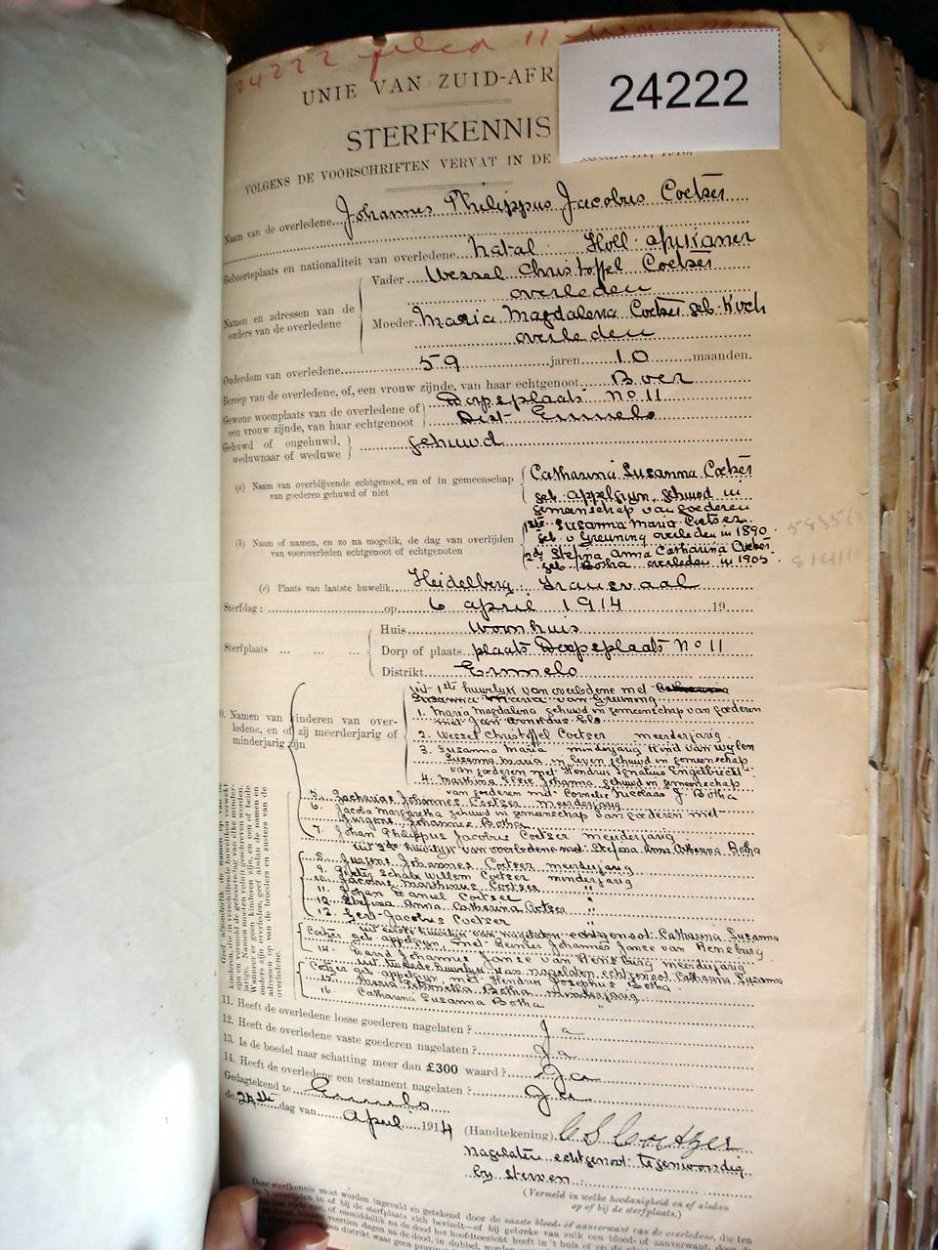 24222 filed 11
24222
UNIE VAN ZUID-AFR
STERFKENNIS
VOLGENS DE VOORSCHRIFTEN VERVAT IN DE
Naam van de overledene Johannes Philippus Jacobus Coetzer
Geboorteplaats en nationaliteit van overledene Natal Holl. Afrikaner
Namen en adressen van de ouders van de overledene
Vader Wessel Christoffel Coetzer
overleden
Moeder Maria Magdalena Coetzer geb. Koch
overleden
Ouderdom van overledene 59 jaren 10 maanden.
Beroep van de overledene, of, een vrouw zijnde, van haar echtgenoot Boer
Gewone woonplaats van de overledene of een vrouw zijnde, van haar echtgenoot
Dorpsplaats No 11
Dist Ermelo
Gehuwd of ongehuwd, weduwnaar of weduwe gehuwd
(a) Naam van overblijvende echtgenoot, en of in gemeenschap van goederen gehuwd of niet
Catharina Susanna Coetzer
geb. Appelgryn, gehuwd in
gemeenschap van goederen
(b) Naam of namen, en zo na mogelik, de dag van overlijden van vooroverleden echtgenoot of echtgenoten
1ste Susanna Maria Coetzer
geb. v Greuning overleden in 1890
2de Stefina Anna Catharina Coetzer
geb. Botha overleden in 1905
(c) Plaats van laatste huwelik Heidelberg. Transvaal
Sterfdag: op 6 April 1914 19
Sterfplaats
Huis Woonhuis
Dorp of plaats plaats Dorpsplaats No 11
Distrikt Ermelo
Namen van kinderen van overledene, en of zij meerderjarig of minderjarig zijn
uit 1ste huwelijk van overledene met
Susanna Maria van Greuning
1. Maria Magdalena gehuwd in gemeenschap van goederen
met Jan
2. Wessel Christoffel Coetzer meerderjarig
3. Susanna Maria minderjarig kind van wylen
Susanna Maria in leven gehuwd in gemeenschap
van goederen met Hendrus Ignatius Engelbrecht
4. Marthina Elsie Johanna, gehuwd in gemeenschap
van goederen met Cornelis Nicolaas J Botha
5. Zacharias Johannes Coetzer meerderjarig
6. Jacoba Margaretha gehuwd in gemeenschap van goederen met
Jurgens Johannes Botha
7. Johan Philippus Jacobus Coetzer meerderjarig
uit 2de huwelijk van overledene met Stefina Anna Catherina Botha
8. Jurgens Johannes Coetzer meerderjarig
9. Pieter Schalk Willem Coetzer minderjarig
10. Jacobus Marthinus Coetzer "
11. Johan Daniel Coetzer "
12. Stefina Anna Catharina Coetzer "
13. Gert Jacobus Coetzer "
uit eerste huwelijk van nagelaten echtgenoot Catharina Susanna
Coetzer geb Appelgryn, met Johannes Janse van Rensburg
14. Johannes Janse van Rensburg minderjarig
uit tweede huwelijk van nagelaten echtgenoot Catharina Susanna
Coetzer geb. Appelgryn met Hendrus Josephus Botha
15. Maria Botha minderjarig
16 Catharina Susanna Botha "
11. Heeft de overledene losse goederen nagelaten? Ja
12. Heeft de overledene vaste goederen nagelaten? Ja
13. Is de boedel naar schatting meer dan £300 waard? Ja
14. Heeft de overledene een testament nagelaten? Ja
Gedagtekend te Ermelo
de dag van April 1914
(Handtekening) C S Coetzer
nagelaten echtgenoot tegenwoordig
by sterven
(Vermeld in welke hoedanigheid en of alsdan
op of bij de sterfplaats.)
Deze sterfkennis moet worden ingevuld en getekend door de naaste bloed- of aanverwant van de overledene, die ten